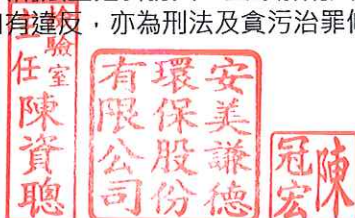 有違反，亦為刑法及貪污治罪
驗室
主任陳資聰
安美謙德
環保股份
有限公司
陳
冠宏